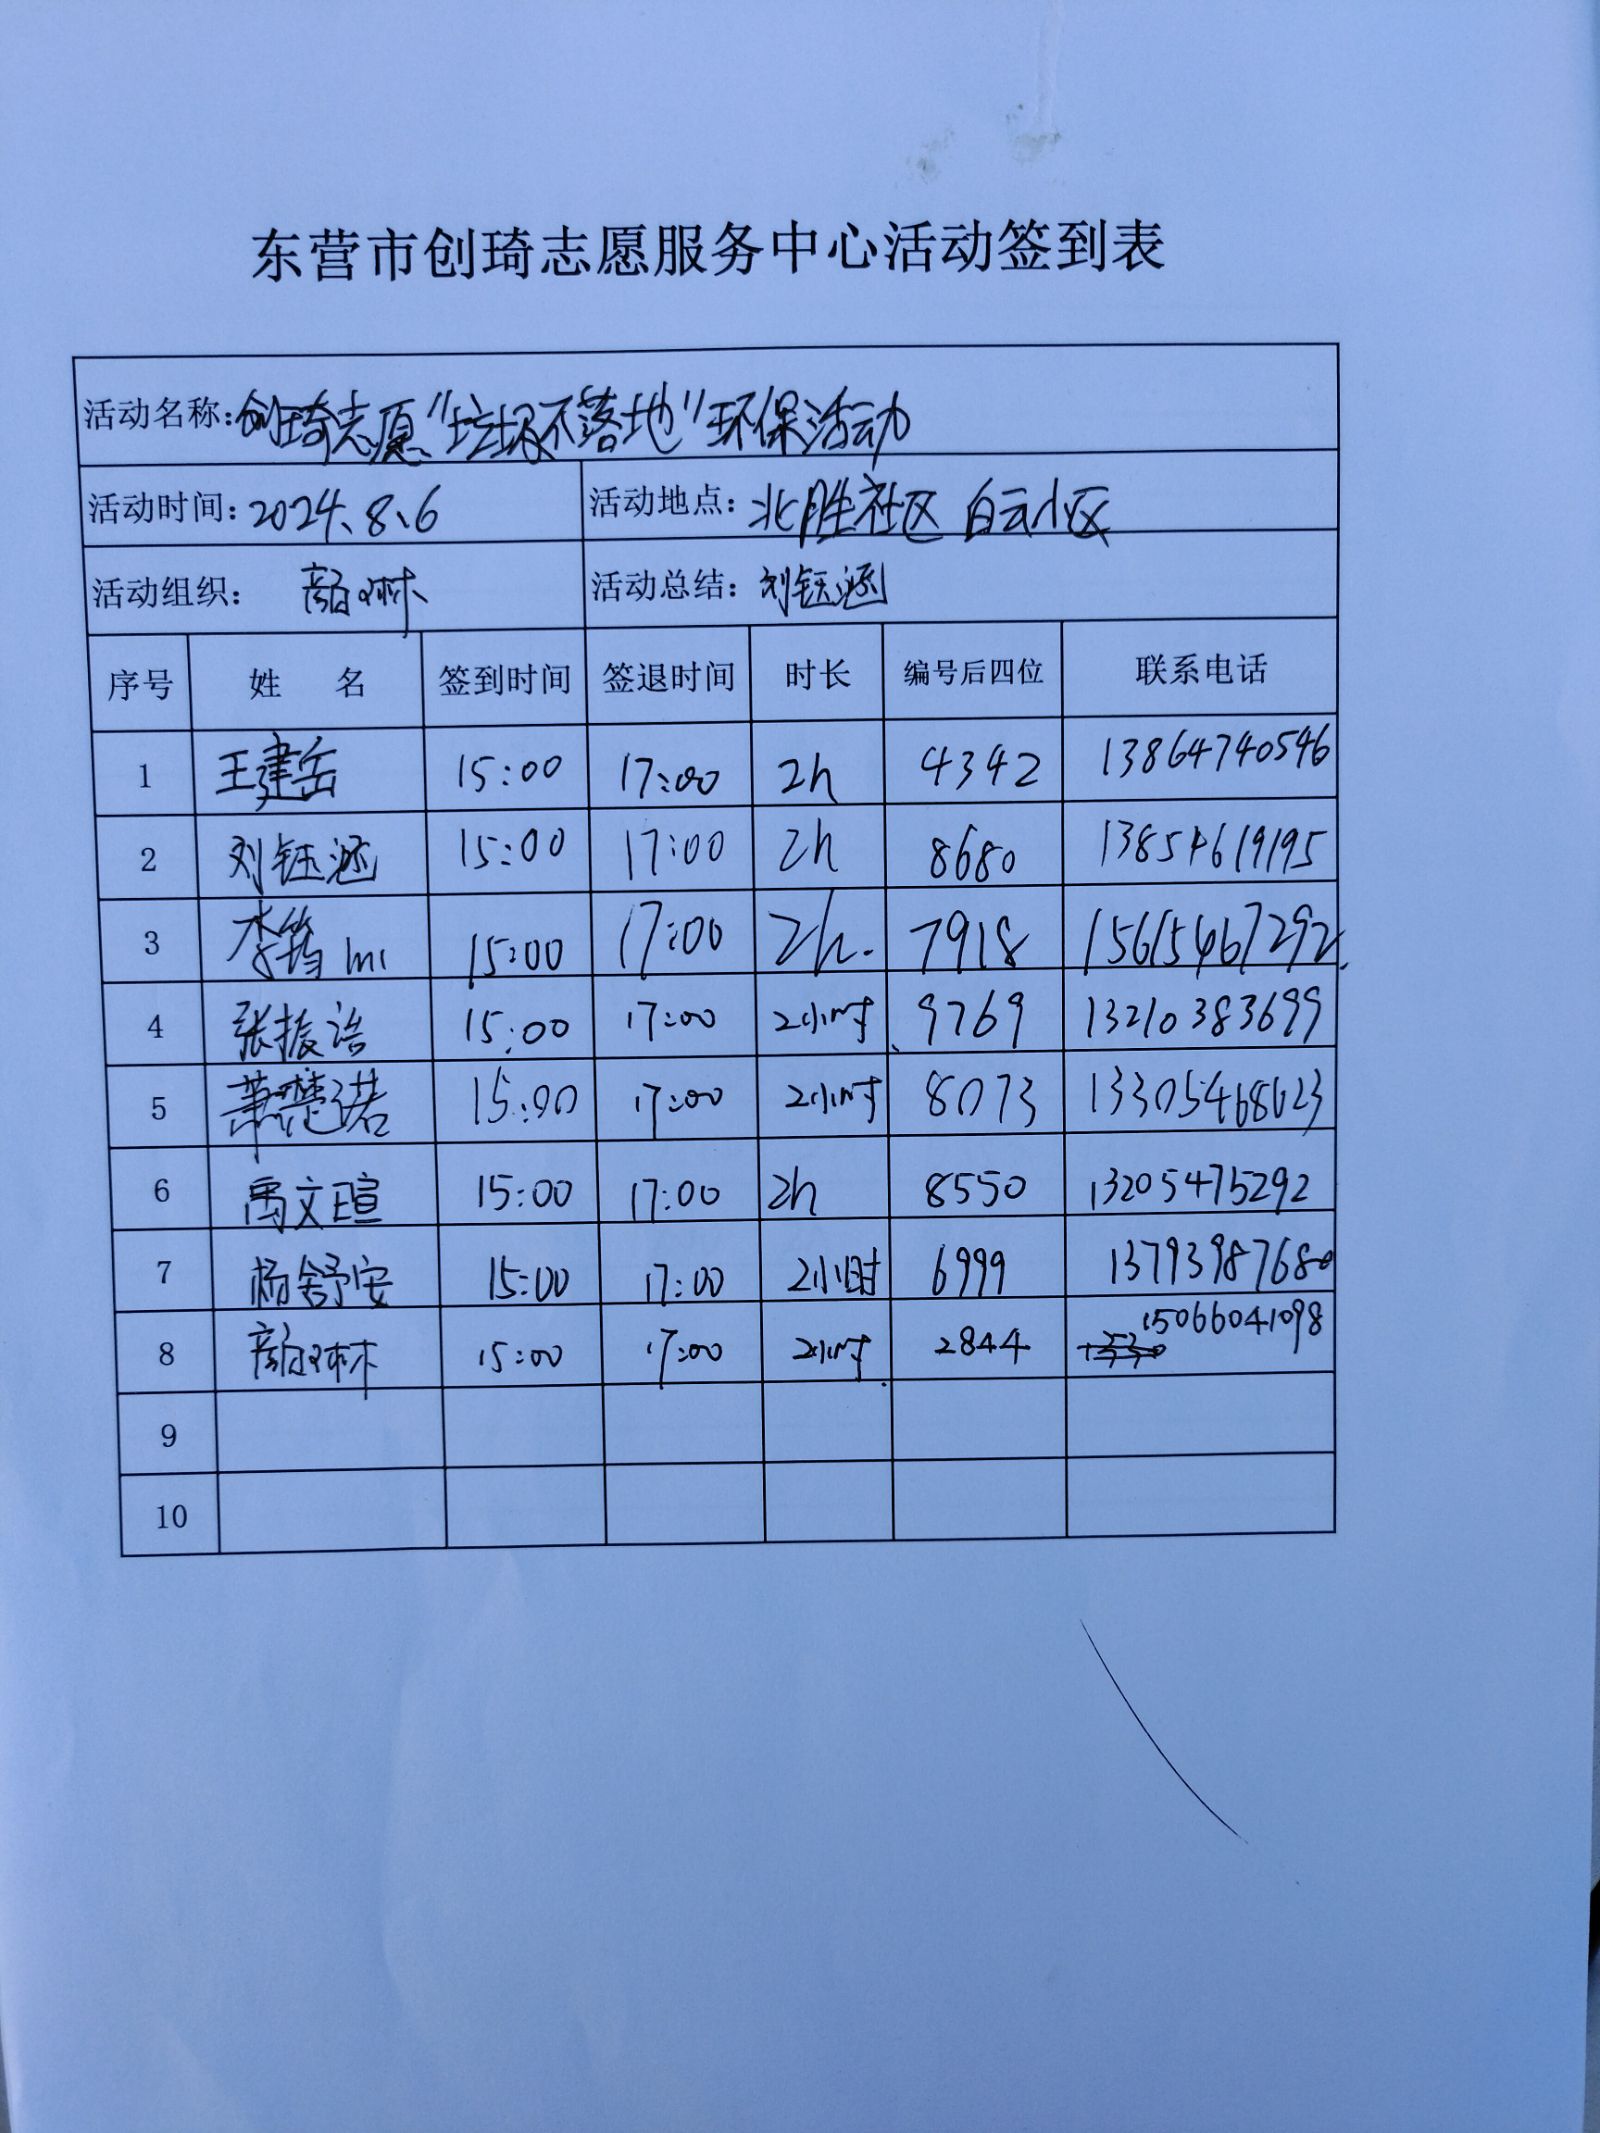 东营市创琦志愿服务中心活动签到表
活动名称：创琦志愿“垃圾不落地”环保活动
活动时间：2024、8、6 活动地点：北胜社区 白云小区
活动组织： 活动总结：刘钰涵
序号 姓 名 签到时间 签退时间 时长 编号后四位 联系电话
1 王建岳 15:00 17:00 2h 4342 13864740546
2 刘钰涵 15:00 17:00 2h 8680 13854619195
3 李筠 15:00 17:00 2h. 7918 15615467292
4 张振语 15:00 17:00 2小时 9769 13210383699
5 萧楚诺 15:00 17:00 2小时 8073 13305468623
6 禹文瑄 15:00 17:00 2h 8550 13205475292
7 杨舒安 15:00 17:00 2小时 6999 13793987680
8 15:00 17:00 2小时 2844 15066041098
9
10